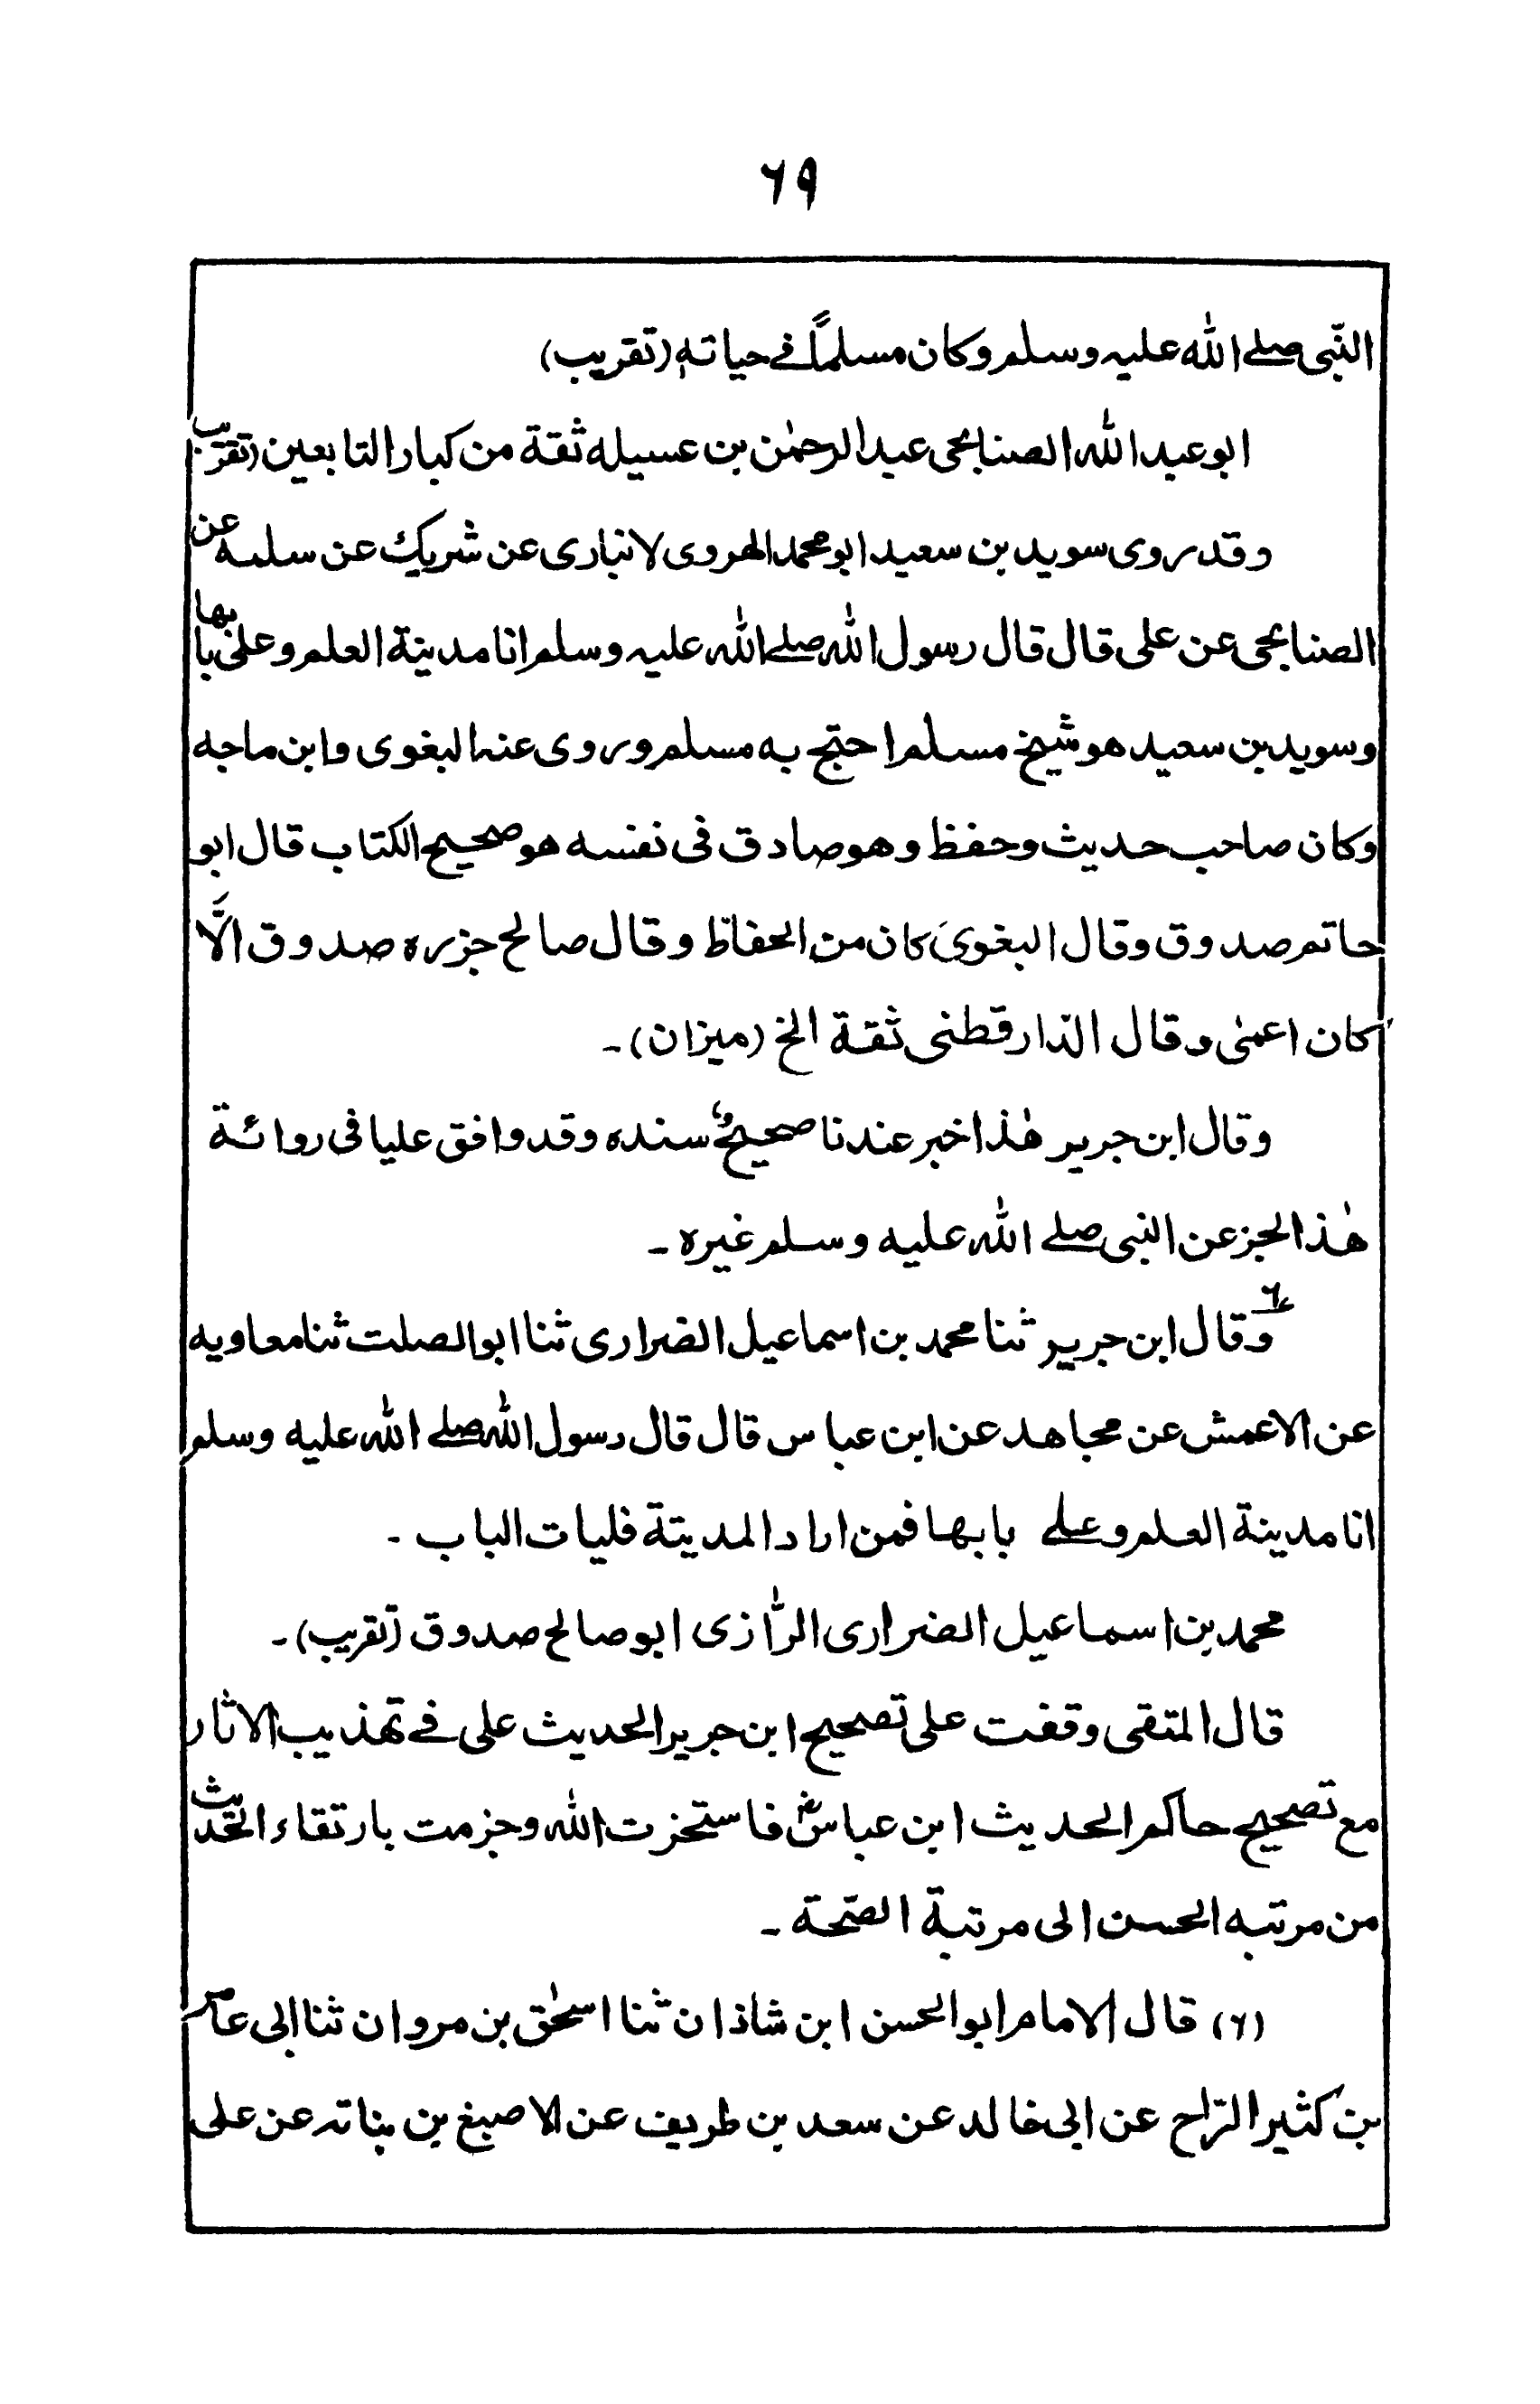 ۶۹
النّبی صلے اللّٰه علیہ وسلم وکان مسلماً فے حیاتہٖ (تقریب)
ابو عبد اللّٰه الصنابحی عبد الرحمٰن بن عسیله ثقة من کبار التابعین (تقریب
وقد روی سوید بن سعید ابو محمد الهروی لانباری عن شریک عن سلمه عن
الصنابحی عن علی قال قال رسول اللّٰه صلے اللّٰه علیہ وسلم انا مدینة العلم وعلیٌ بابها
وسوید بن سعید هو شیخ مسلم احتج به مسلم وروی عنہ البغوی وابن ماجه
وکان صاحب حدیث وحفظ وهو صادق فی نفسه هو صحیح الکتاب قال ابو
حاتم صدوق وقال البغوی کان من الحفاظ وقال صالح جزره صدوق الَّا
کان اعمیٰ وقال الدّارقطنی ثقة الخ (میزان)۔
وقال ابن جریر هٰذا خبر عندنا صحیحٌ سنده وقد وافق علیا فی روائة
هٰذا الجز عن النبی صلے اللّٰه علیه وسلم غیره۔
۶
وقال ابن جریر ثنا محمد بن اسماعیل الضراری ثنا ابو الصلت ثنا معاویه
عن الاعمش عن مجاهد عن ابن عباس قال قال رسول اللّٰه صلے اللّٰه علیه وسلم
انا مدینة العلم وعلے بابها فمن اراد المدیتة فلیات الباب۔
محمد بن اسماعیل الضراری الرّازی ابو صالح صدوق (تقریب)۔
قال المتقی وقفت علی تصحیح ابن جریر الحدیث علی فے تهذیب الاثار
مع تصحیح حاکم الحدیث ابن عباسؓ فاستخزت اللّٰه وجزمت بارتقاء الحدیث
من مرتبه الحسن الی مرتبة الصّحة۔
(۶) قال الامام ابو الحسن ابن شاذان ثنا اسحٰق بن مروان ثنا ابی عامر
بن کثیر السّراج عن ابی خالد عن سعد بن طریف عن الاصبغ بن بناتہ عن علی